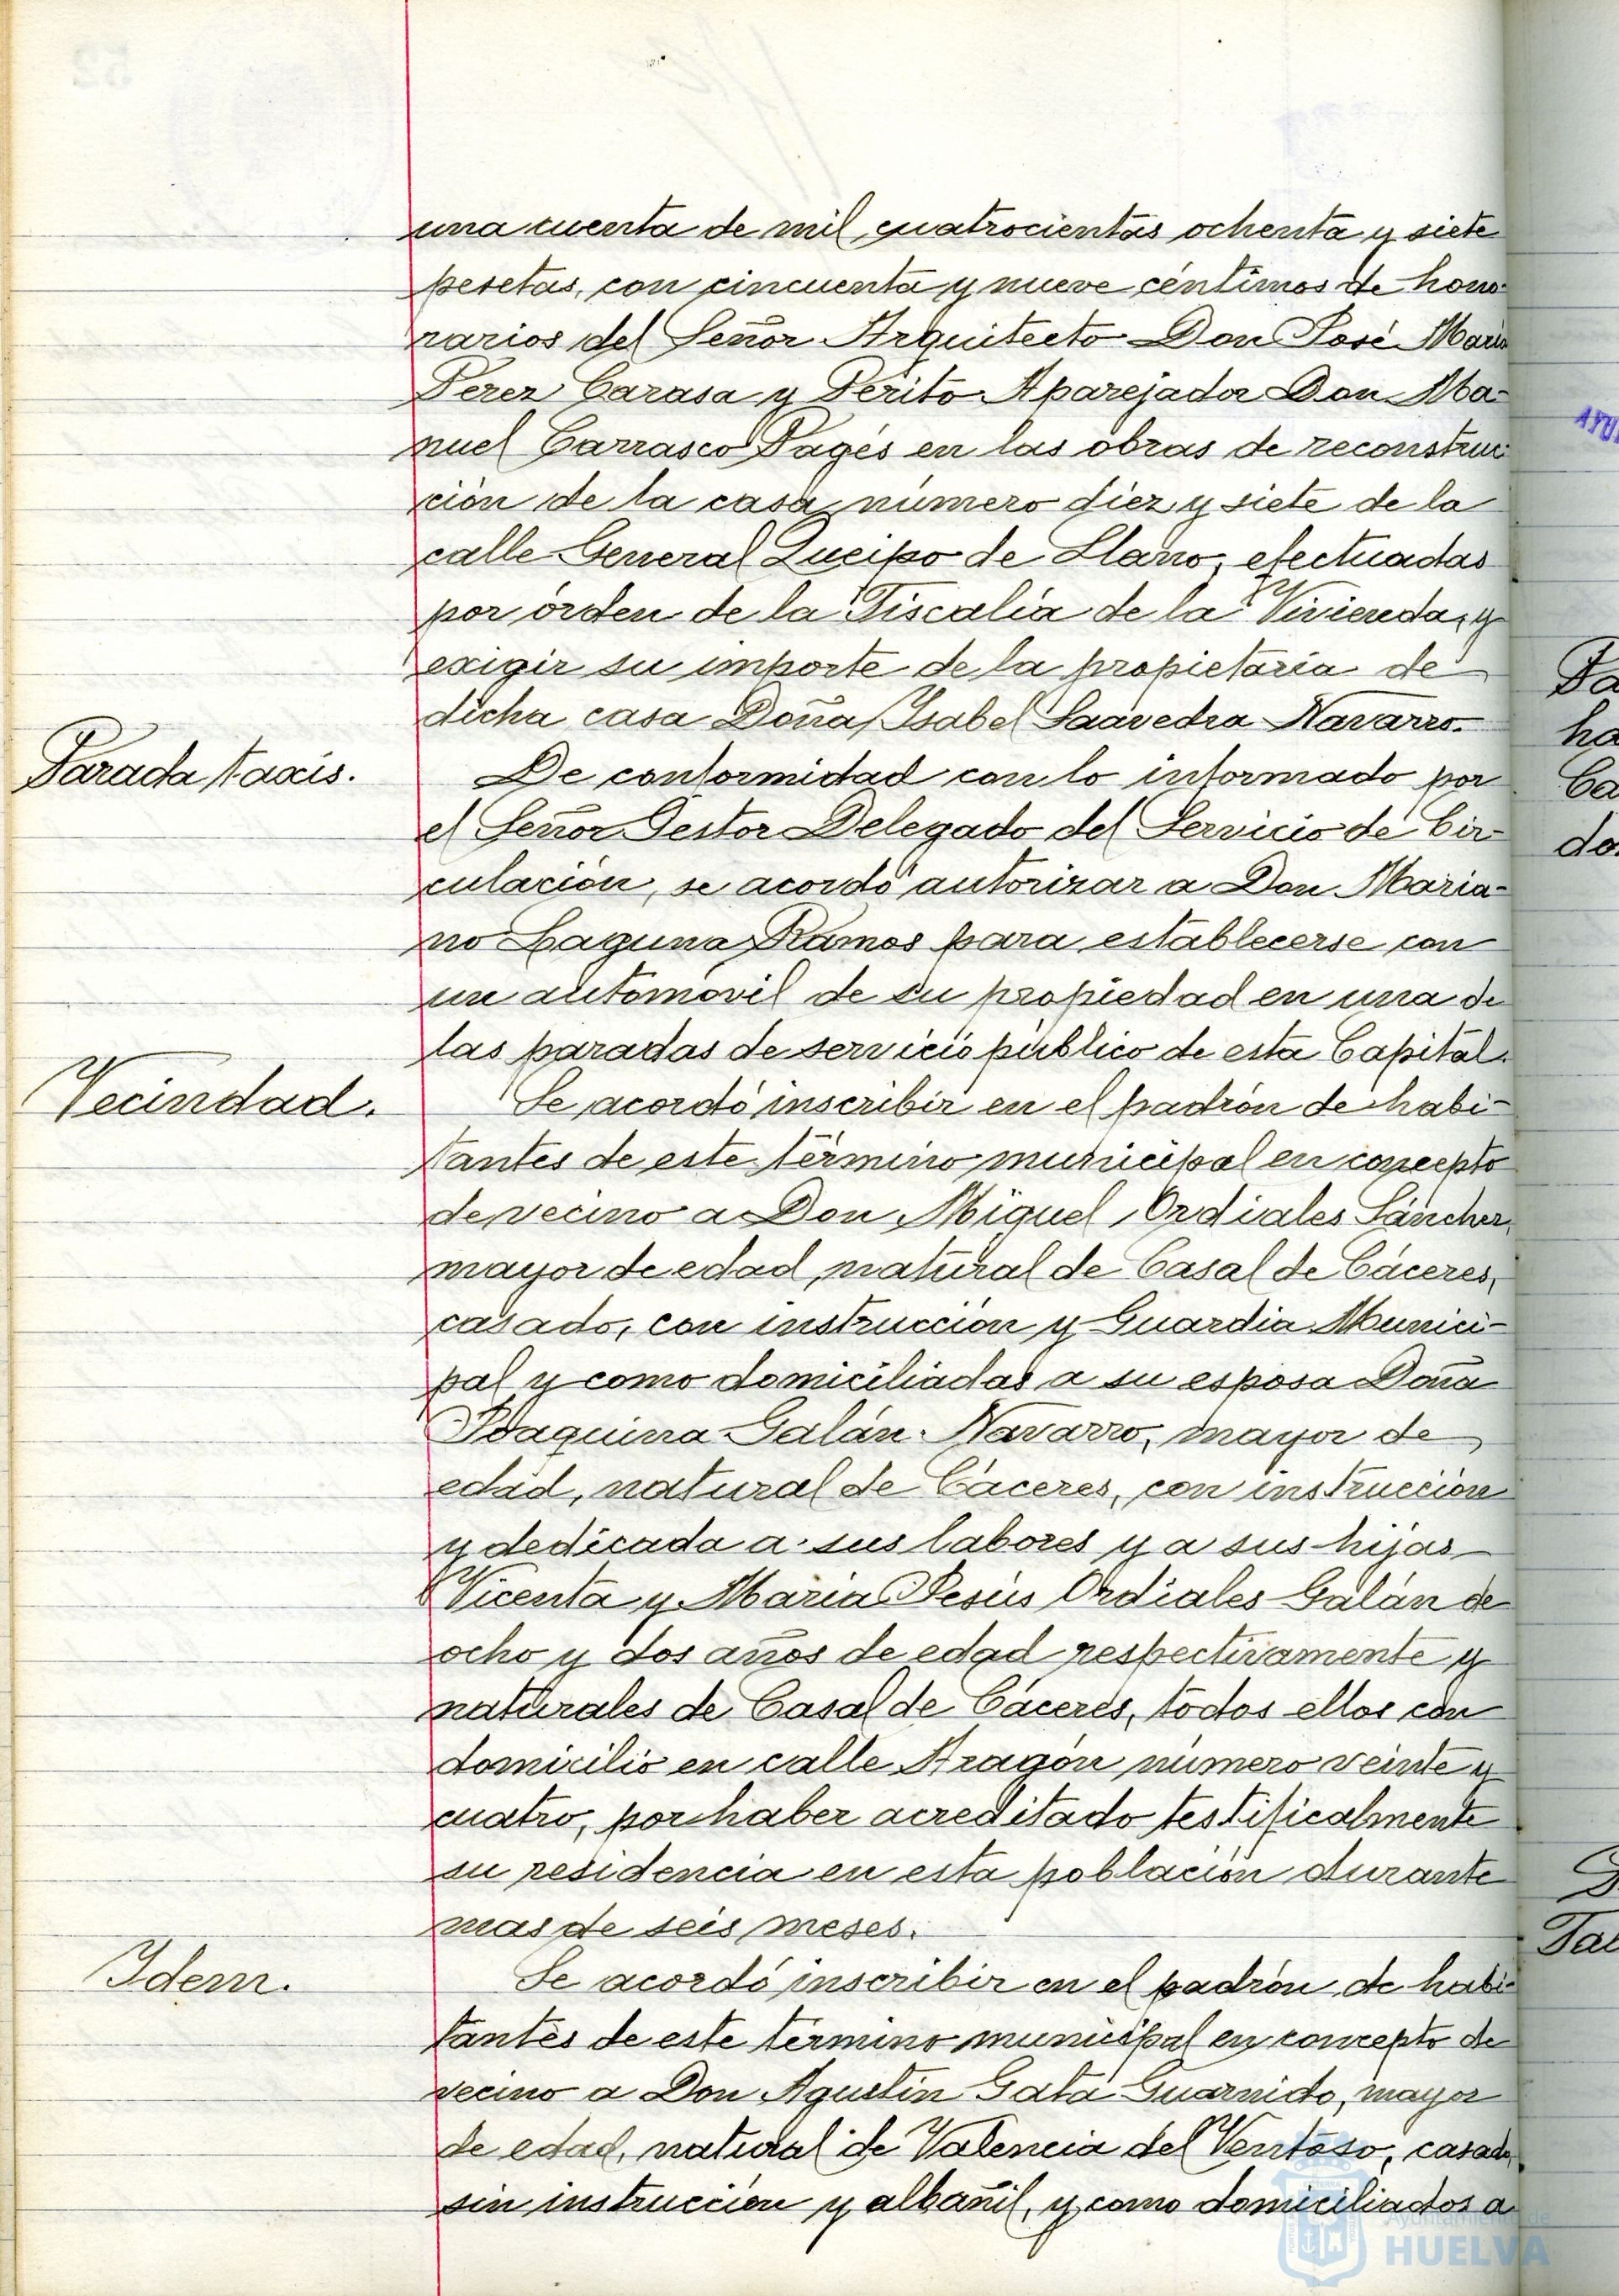 una cuenta de mil cuatrocientas ochenta y siete
pesetas, con cincuenta y nueve céntimos de hono-
rarios del Señor Arquitecto Don José María
Perez Carasa y Perito Aparejador Don Ma-
nuel Carrasco Pagés en las obras de reconstruc-
ción de la casa número diez y siete de la
calle General Queipo de Llano, efectuadas
por órden de la Fiscalía de la Vivienda, y
exigir su importe de la propietaria de
dicha casa Doña Ysabel Saavedra Navarro.
Parada taxis.
De conformidad con lo informado por
el Señor Gestor Delegado del Servicio de Cir-
culación, se acordó autorizar a Don Maria-
no Laguna Ramos para establecerse con
un automóvil de su propiedad en una de
las paradas de servicio público de esta Capital.
Vecindad.
Se acordó inscribir en el padrón de habi-
tantes de este término municipal en concepto
de vecino a Don Miguel Ordiales Sánchez,
mayor de edad, natural de Casal de Cáceres,
casado, con instrucción y Guardia Munici-
pal y como domiciliadas a su esposa Doña
Joaquina Galán Navarro, mayor de
edad, natural de Cáceres, con instrucción
y dedicada a sus labores y a sus hijas
Vicenta y María Jesús Ordiales Galán de
ocho y dos años de edad respectivamente y
naturales de Casal de Cáceres, todos ellos con
domicilio en calle Aragón número veinte y
cuatro, por haber acreditado testificalmente
su residencia en esta población durante
mas de seis meses.
Idem.
Se acordó inscribir en el padrón de habi-
tantes de este término municipal en concepto de
vecino a Don Agustín Gata Guarnido, mayor
de edad, natural de Valencia del Ventoso, casado,
sin instrucción y albañil, y como domiciliados a
Ayuntamiento de
HUELVA